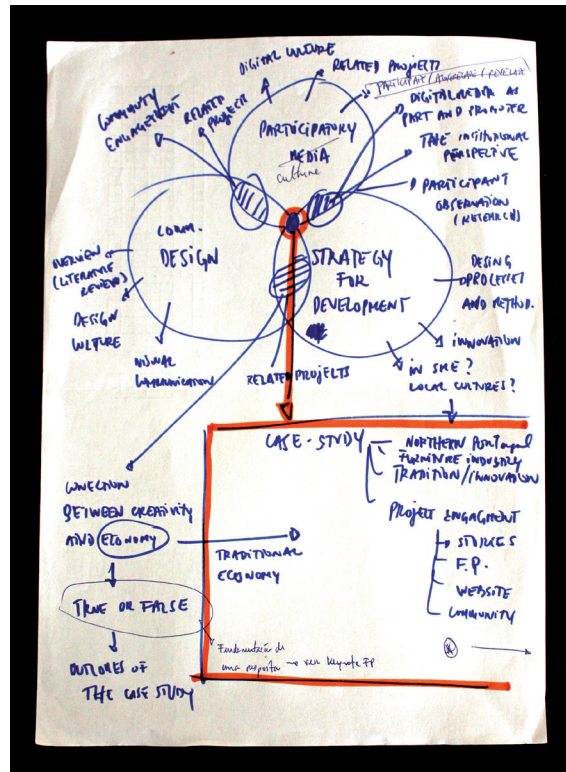 DIGITAL CULTURE
RELATED PROJECTS
COMMUNITY
ENGAGEMENT
RELATED
PROJECT
PARTICIPATORY
MEDIA
culture
DIGITAL MEDIA AS
PART AND PROMOTER
THE INSTITUTIONAL
PERSPECTIVE
PARTICIPANT
OBSERVATION
(RESEARCH)
COMM.
DESIGN
OVERVIEW
(LITERATURE
REVIEW)
DESIGN
CULTURE
VISUAL
COMMUNICATION
STRATEGY
FOR
DEVELOPMENT
DESING
PROCESSES
AND METHOD.
INNOVATION
IN SME?
LOCAL CULTURES?
RELATED PROJECTS
CASE-STUDY
NORTHERN PORTUGAL
FURNITURE INDUSTRY
TRADITION/INNOVATION
PROJECT ENGAGMENT
STORIES
F.P.
WEBSITE
COMMUNITY
CONECTION
BETWEEN CREATIVITY
AND ECONOMY
TRADITIONAL
ECONOMY
TRUE OR FALSE
OUTCOMES OF
THE CASE STUDY
Fundamentação de
uma resposta → ver keynote FP